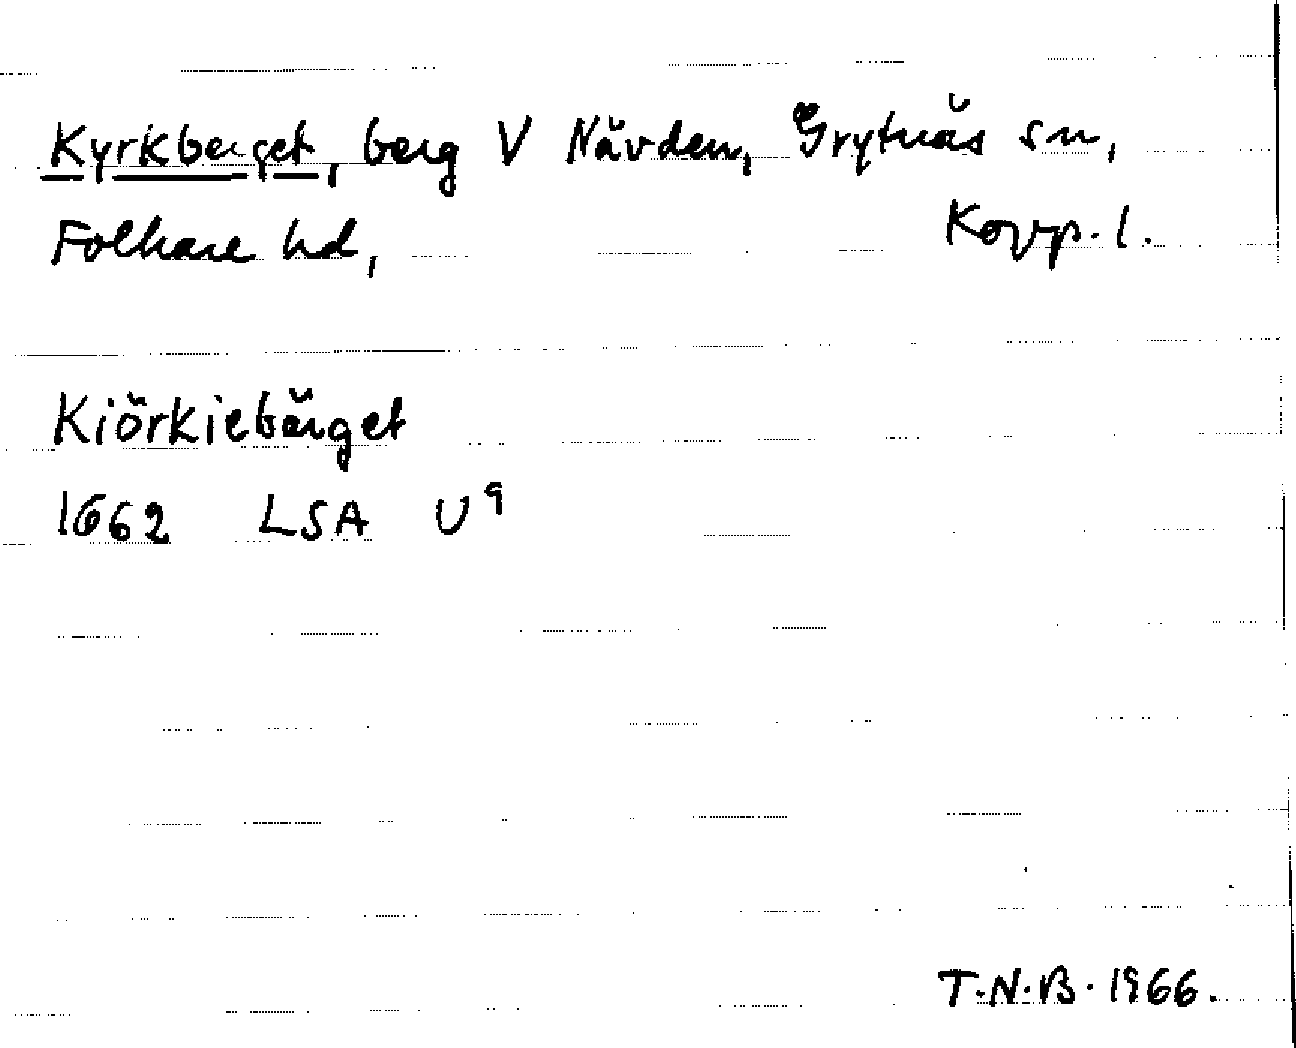 Kyrkberget, berg V Nävden, Grytnäs sn,
Folkare hd, Kopp. l.
Kiörkiebärget
1662 LSA U⁹
T.N.B. 1966.